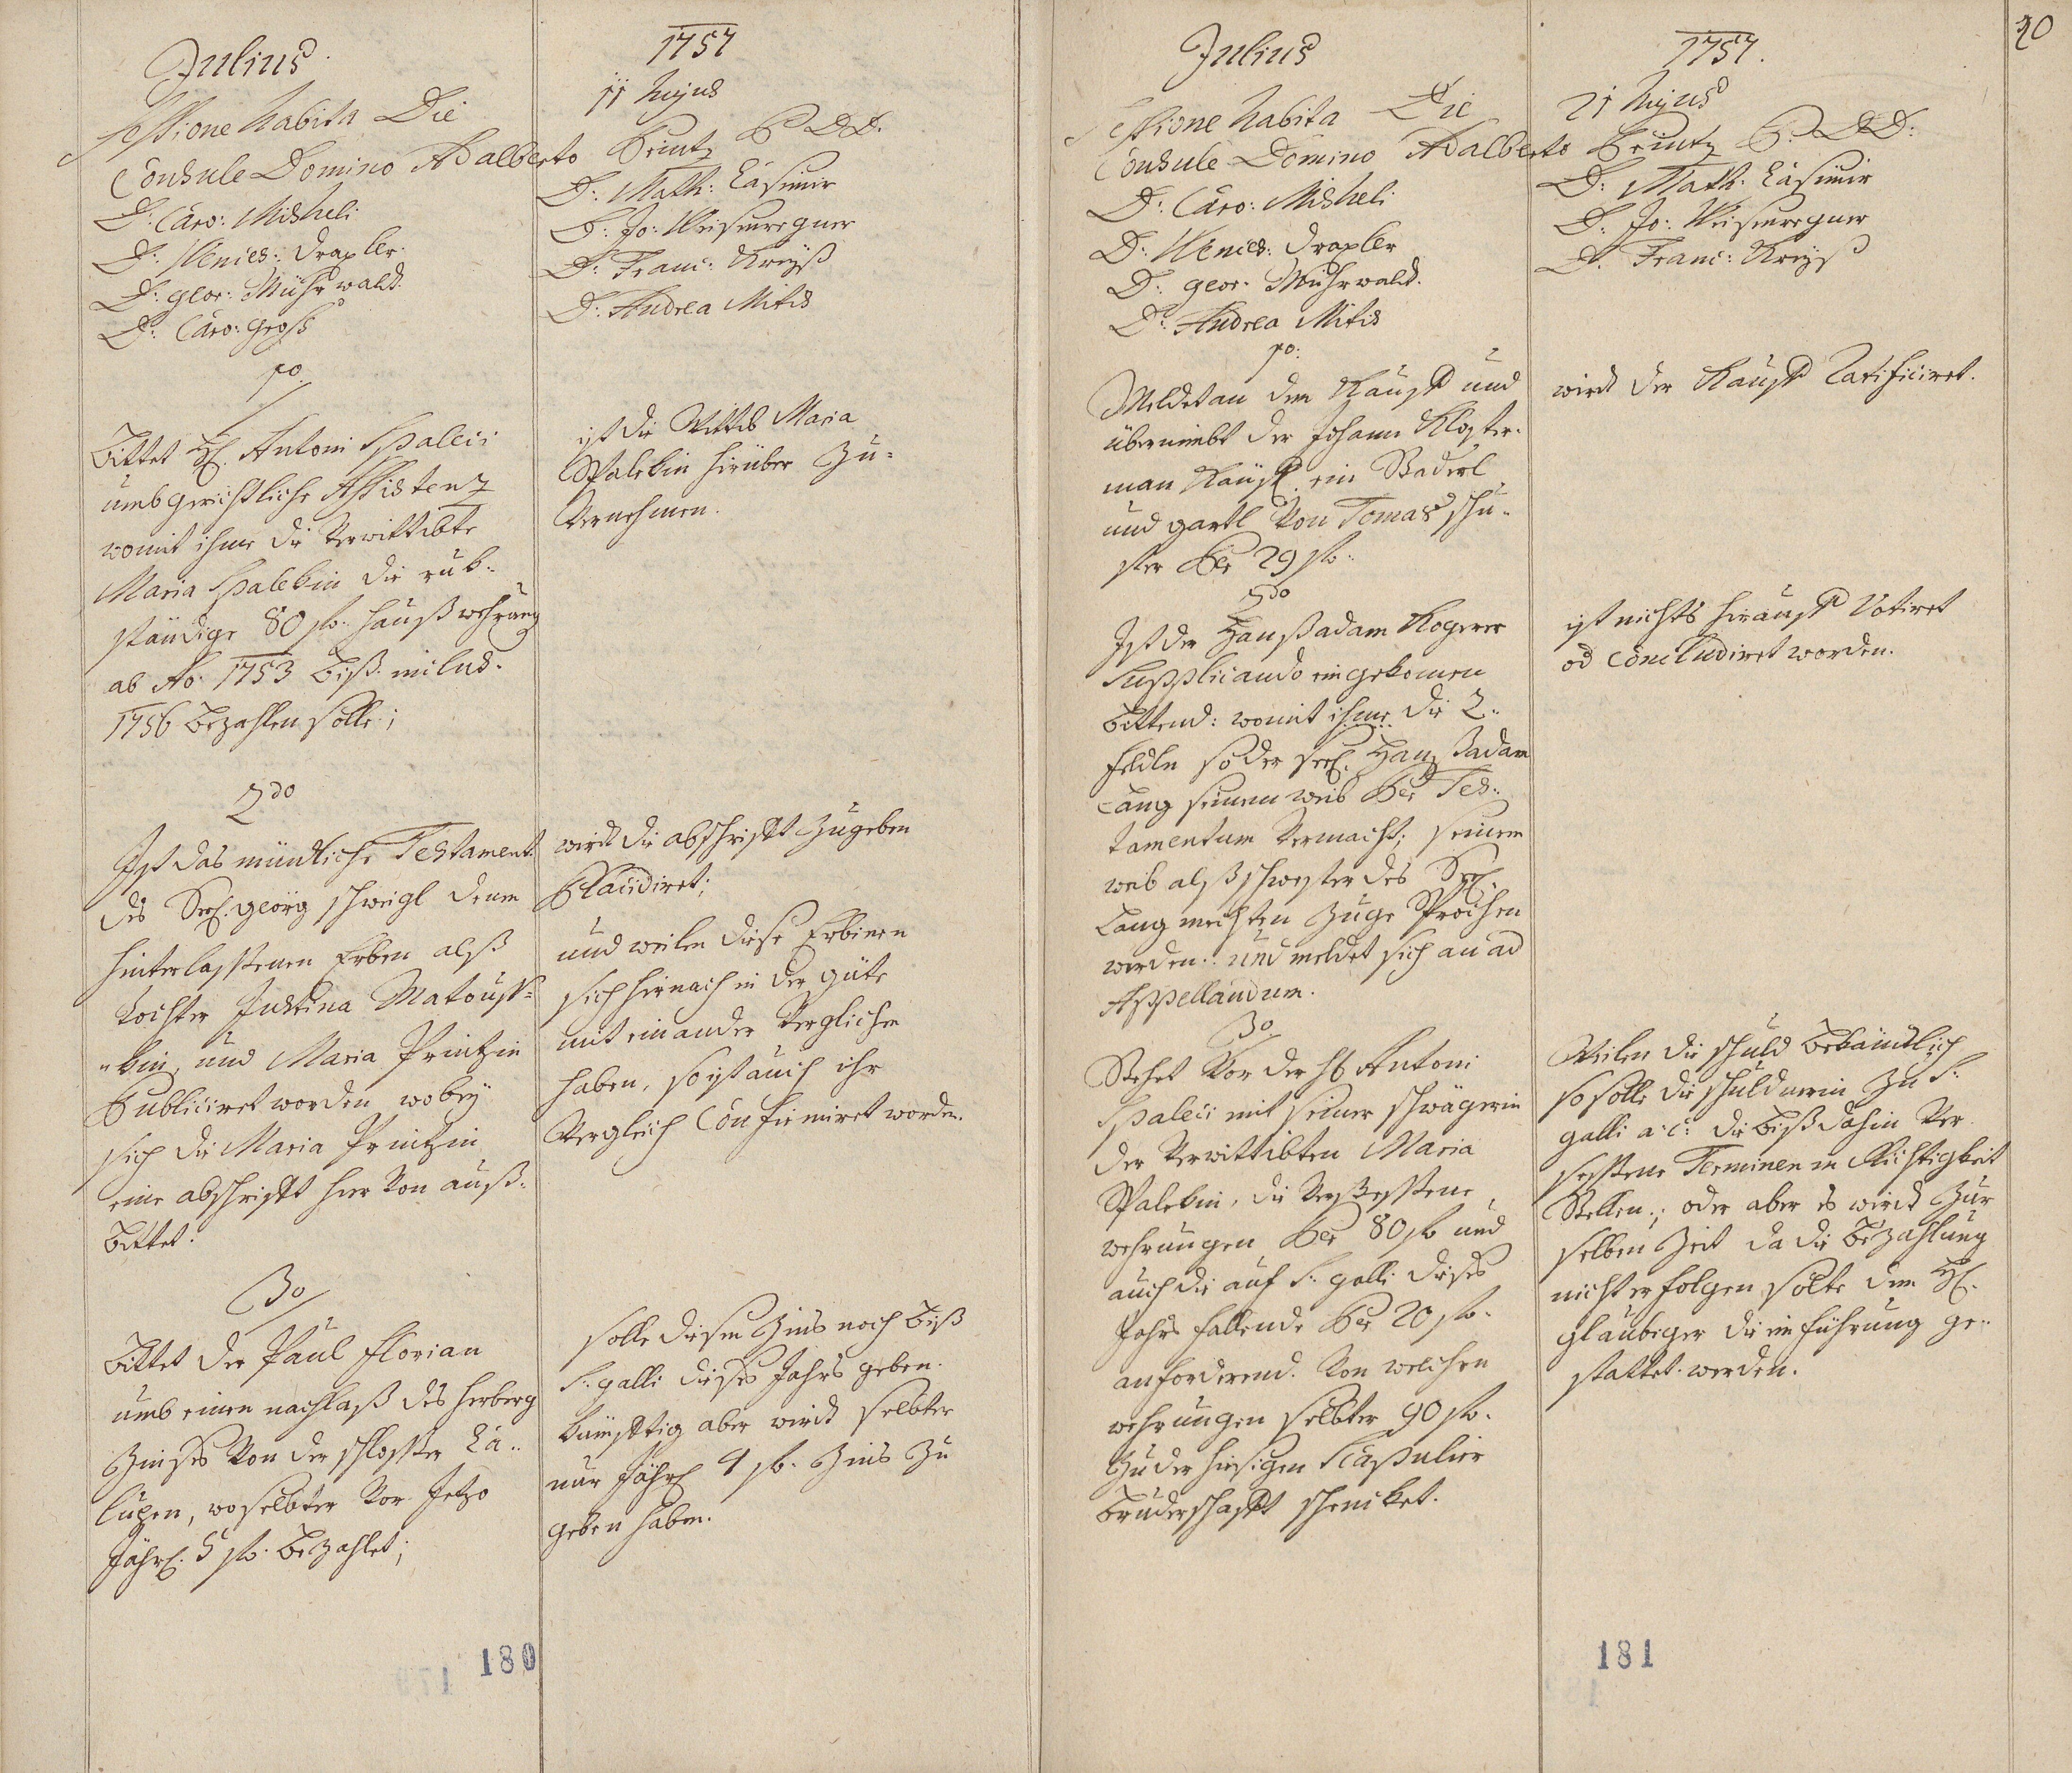 Julius
1757
Sessione habita Die
11 hujus
Consule Domino Adalberto Printz P: DD:
D: Caro: Misheli
D: Math: Casimir
D: Wences: Draxler
D: Jo: Weisenregner
D: Geor: Mührwald
D: Franc: Kreyß
D: Caro: Groß
D: Andrea Mitis
1o
Bittet H. Antoni Spaleci
umb gerichtliche Assistenz
womit ihme die verwittibte
Maria Spalekin die ruk-
ständige 80 fl. Hauß wehrung
ab Ao: 1753 biß inclus:
1756 bezahlen solle;
ist die Wittib Maria
Spalekin hierüber zu-
vernehmen.
2do
Ist das mündliche Testament
des Seel. Georg Schweigl denen
hinterlassenen Erben alß
Tochter Justina Matousch-
kin, und Maria Printzin
Publiciret worden wobey
sich die Maria Printzin
eine abschrifft hier von auß-
bittet.
wird die abschrifft zugeben
Placidiret;
und weilen diese Erbinen
sich hernach in der güte
mit einander verglichen
haben, so ist auch ihr
Vergleich Confirmiret worden.
3o
Bittet der Paul Florian
umb einen nachlaß des herberg
Zinses von der schlosser Ca-
lupen, wo selbter vor jetzo
jährl. 5 fl. bezahlet;
solle diesen Zins noch biß
S: galli dieses Jahrs geben.
künfftig aber wird selbter
nur jährl 4 fl. Zins zu
geben haben.
180
Julius
1757.
20
Sessione habita Die
21 hujus
Consule Domino Adalberto Printz P: DD:
D: Caro: Misheli
D: Math: Casimir
D: Wences: Draxler
D: Jo: Weisenregner
D: Geor: Mührwald.
D: Franc: Kreyß
D: Andrea Mitis
1o:
Meldet an den Kauff und
übernimbt der Johann Kloster-
man Kauffl. ein Staderl
und gartl von Tomas Schu-
ster Per 29 fl.
wird der Kauff Ratificiret.
2do
Ist der Hanßadam Kogerer
Supplicando eingekomen
bittend: womit ihme die 2
feldln so der seel. Hanßadam
Lang seinem weib Per Tes-
tamentum vermacht, seinem
weib alß schwester des Seel.
Lang mechten zuge Sprochen
werden: und meldet sich an ad
Appellandum.
ist nichts hierauff Votiret
od Concludiret worden.
3o
Stehet vor der H. Antoni
Spaleci mit seiner schwägerin
der verwittibten Maria
Spalekin, die verseßene
wehrungen Per 80 fl und
auch die auf S: galli dieses
Jahrs fallende Per 20 fl.
anforderend. Von welchen
wehrungen selbter 90 fl.
zu der hiesigen Scapulier
Bruderschafft schenket.
Weilen die schuld bekäntlich
so solle die schuldnerin zu S:
galli a: c: die bißdahin ver
seßene Terminen in Richtigkeit
Stellen; oder aber es wird zur
selben Zeit da die bezahlung
nicht erfolgen solte dem H.
glaubiger die einführung ge-
stattet werden.
181